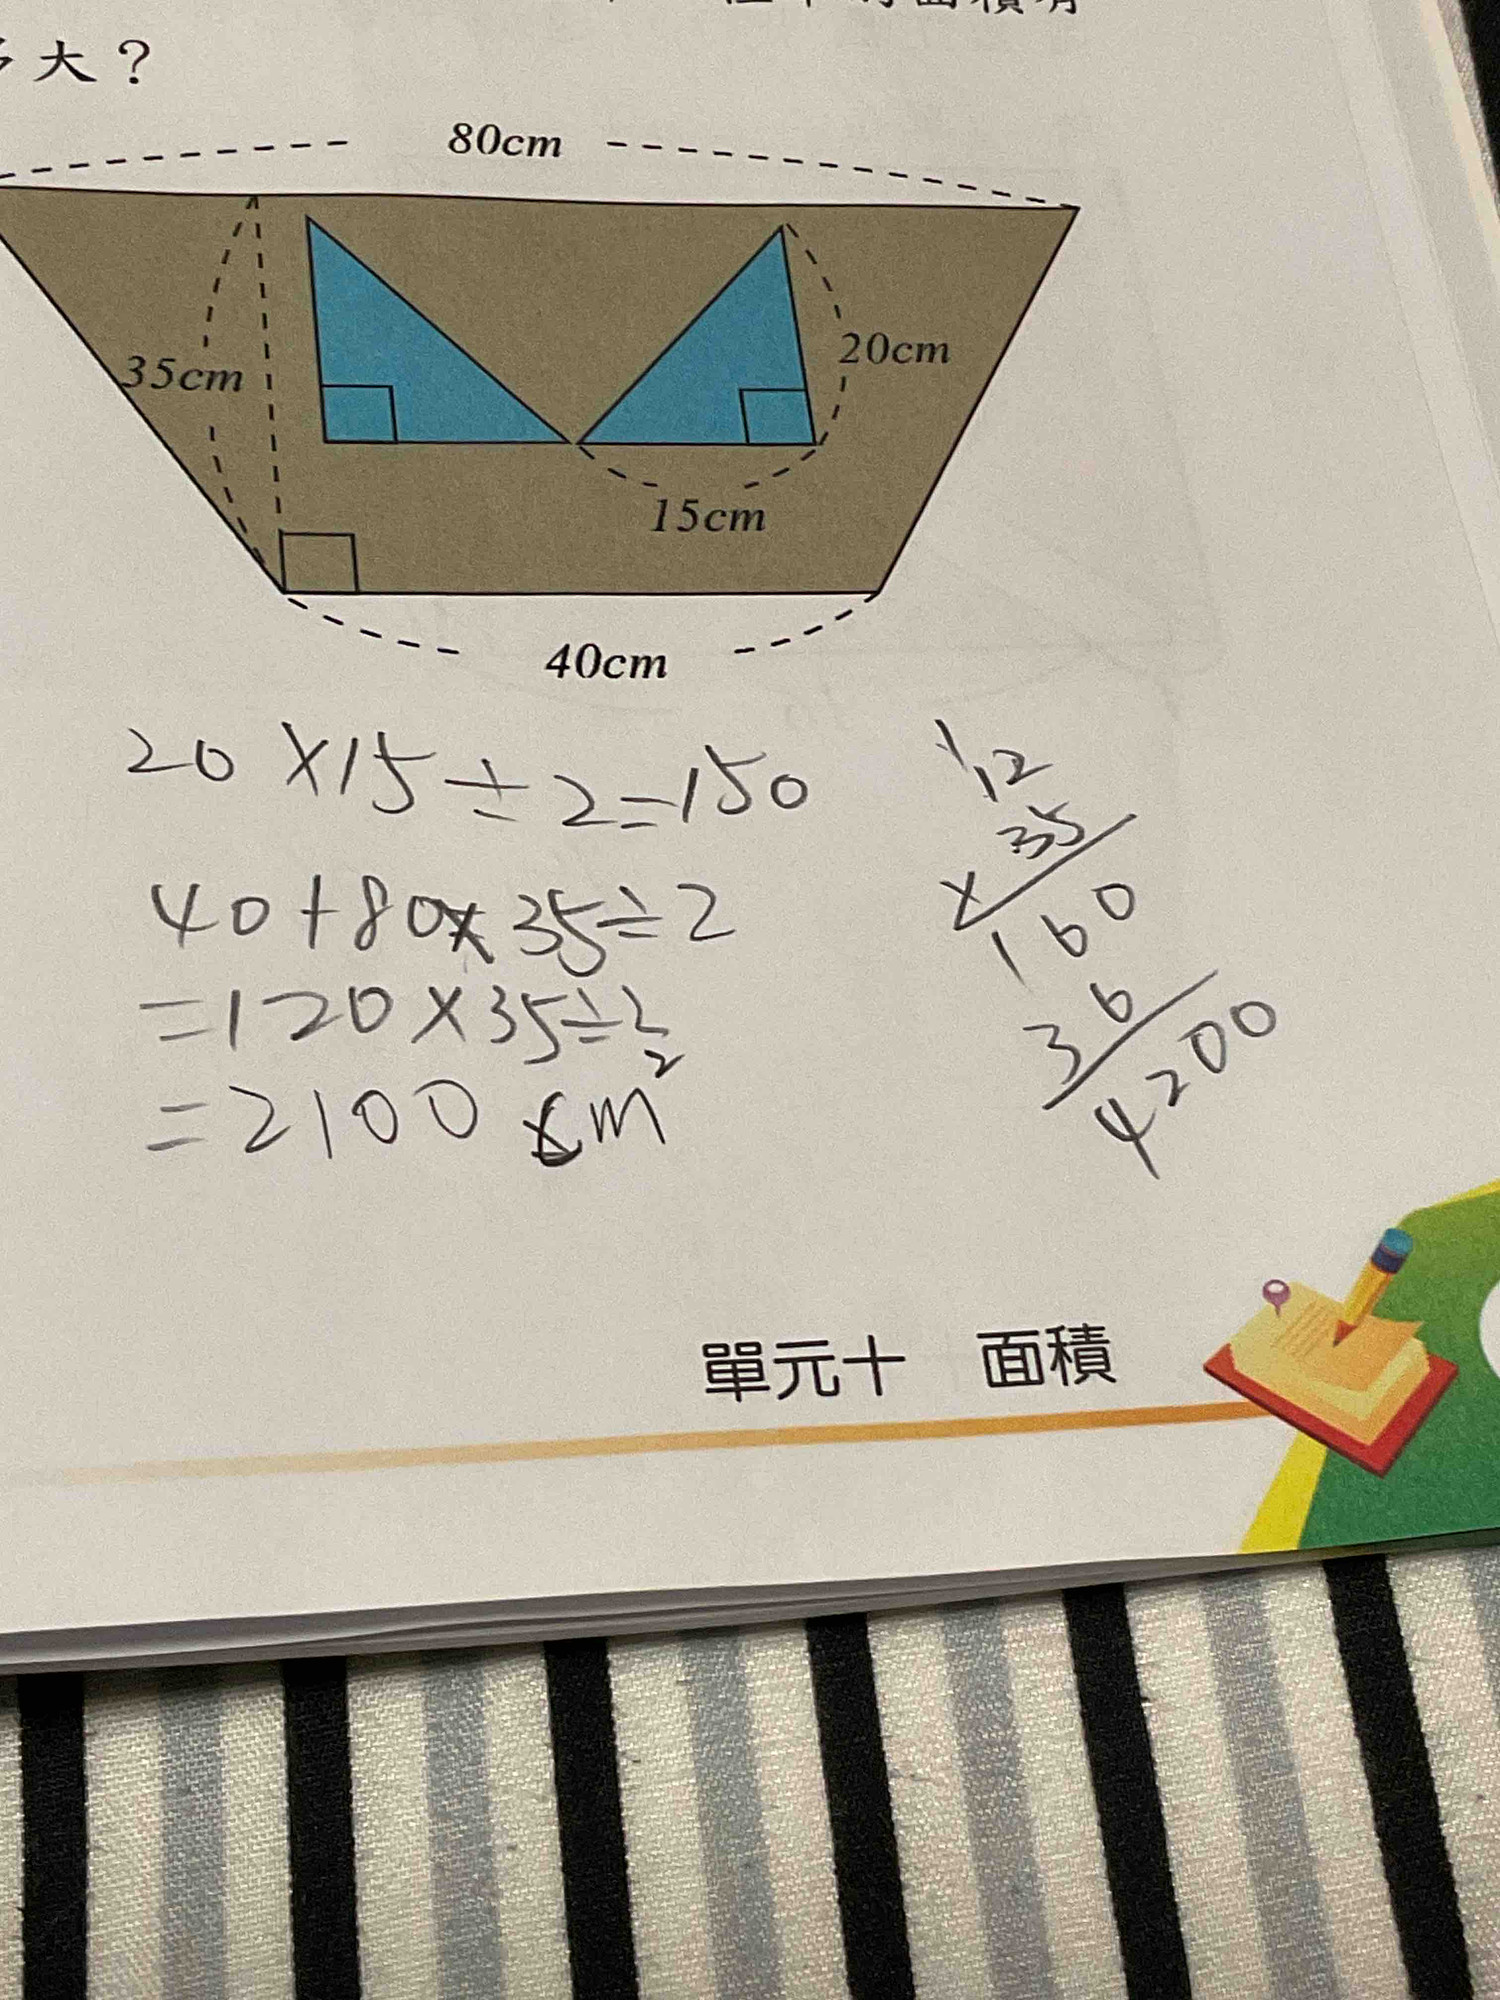 大？
80cm
35cm
20cm
15cm
40cm
20×15÷2=150
40+80×35÷2
=120×35÷2
=2100cm²
12
×35
160
36
4200
單元十 面積